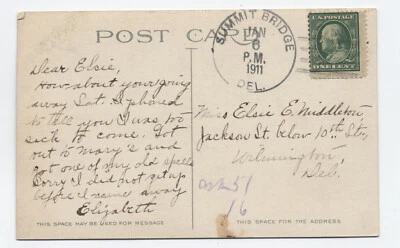 POST CARD
SUMMIT BRIDGE
JAN
6
P.M.
1911
DEL.
U.S. POSTAGE
ONE CENT
Dear Elsie,
How about your going
away Sat. I phoned
to tell you I was too
sick to come. Got
out to Mary's and
got one of my old spells
Sorry I did not get up
before I came away
Elizabeth
Miss Elsie E. Middleton,
Jackson St. below 10th St.,
Wilmington,
Del.
51
16
THIS SPACE MAY BE USED FOR MESSAGE
THIS SPACE IS FOR THE ADDRESS.